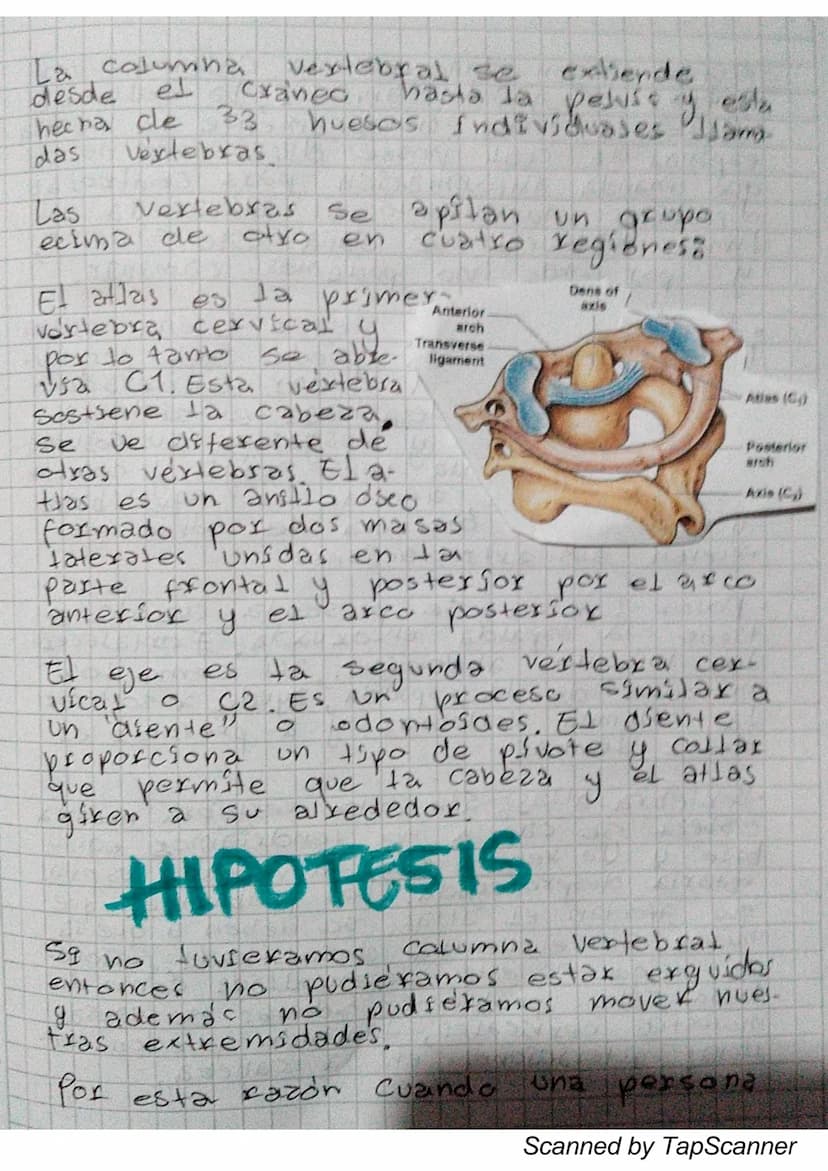 La columna vertebral se extiende
desde el cráneo hasta la pelvis y esta
hecha de 33 huesos individuales llama-
das vértebras.
Las vertebras se apilan un grupo
ecima de otro en cuatro regiones:
El atlas es la primer
vértebra cervical y
por lo tanto se abre-
via C1. Esta vértebra
sostiene la cabeza,
se ve diferente de
otras vértebras. El a-
tlas es un anillo óseo
formado por dos masas
laterales unidas en la
parte frontal y posterior por el arco
anterior y el arco posterior
Dens of
axis
Anterior
arch
Transverse
ligament
Atlas (C1)
Posterior
arch
Axis (C2)
El eje es la segunda vértebra cer-
vical o C2. Es un proceso similar a
un "diente" o odontoides. El diente
proporciona un tipo de pivote y collar
que permite que la cabeza y el atlas
giren a su alrededor.
HIPOTESIS
Si no tuvieramos columna vertebral
entonces no pudiéramos estar erguidos
y además no pudiéramos mover nues-
tras extremidades.
Por esta razón cuando una persona
Scanned by TapScanner